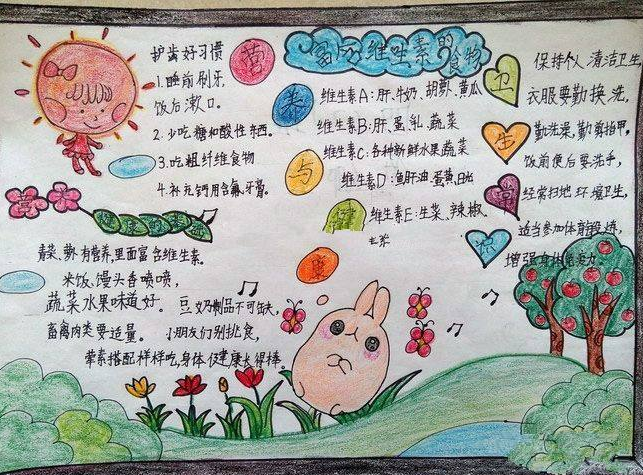 护齿好习惯
1.睡前刷牙,
饭后漱口。
2.少吃糖和酸性东西。
3.吃粗纤维食物
4.补充钙用含氟牙膏。
营
养
与
健
康
维生素的食物
维生素A:肝、牛奶、胡萝、黄瓜
维生素B:肝、蛋、乳、蔬菜
维生素C:各种新鲜水果、蔬菜
维生素D:鱼肝油、蛋黄、
维生素E:生菜、辣椒.
卫
生
常
识
保持个人清洁卫生,
衣服要勤换洗,
勤洗澡,勤剪指甲,
饭前便后要洗手,
经常扫地环境卫生,
适当参加体育锻炼,
增强身体
营养
青菜、有营养,里面富含维生素。
米饭、馒头香喷喷,
蔬菜水果味道好。豆奶制品不可缺,
畜禽肉类要适量。小朋友们别挑食,
荤素搭配样样吃,身体健康长得棒。